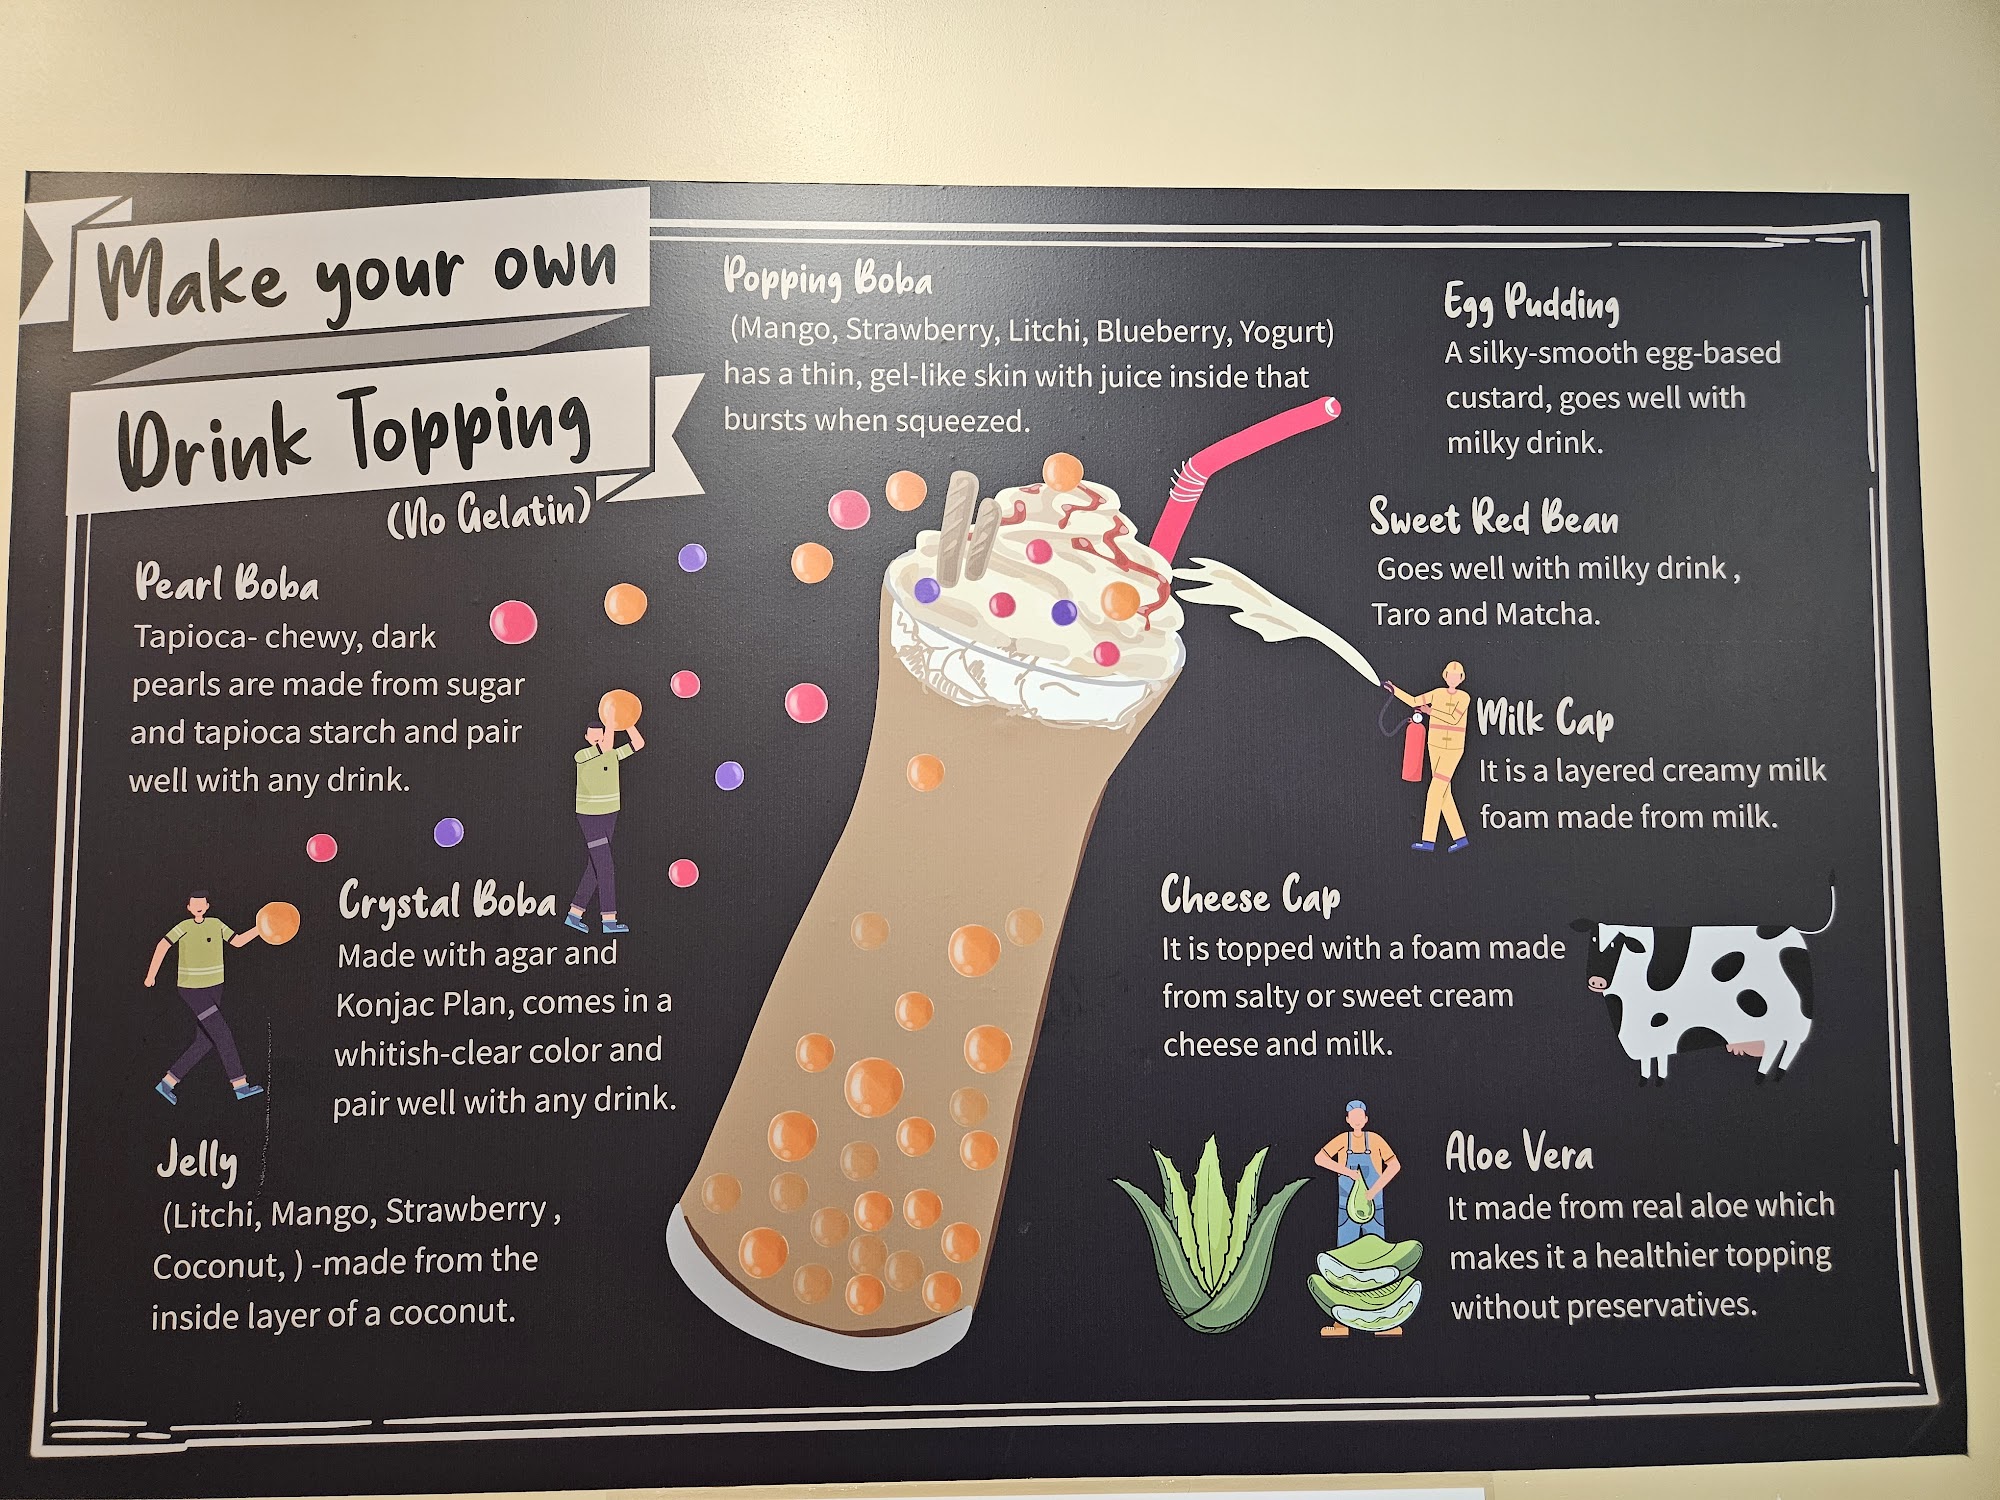 Make your own
Drink Topping
(No Gelatin)
Pearl Boba
Tapioca- chewy, dark
pearls are made from sugar
and tapioca starch and pair
well with any drink.
Crystal Boba
Made with agar and
Konjac Plan, comes in a
whitish-clear color and
pair well with any drink.
Jelly
(Litchi, Mango, Strawberry ,
Coconut, ) -made from the
inside layer of a coconut.
Popping Boba
(Mango, Strawberry, Litchi, Blueberry, Yogurt)
has a thin, gel-like skin with juice inside that
bursts when squeezed.
Egg Pudding
A silky-smooth egg-based
custard, goes well with
milky drink.
Sweet Red Bean
Goes well with milky drink ,
Taro and Matcha.
Milk Cap
It is a layered creamy milk
foam made from milk.
Cheese Cap
It is topped with a foam made
from salty or sweet cream
cheese and milk.
Aloe Vera
It made from real aloe which
makes it a healthier topping
without preservatives.